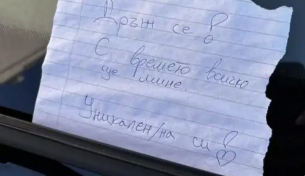 Дръж се!
С времето всичко
ще мине.
Уникален/на си!